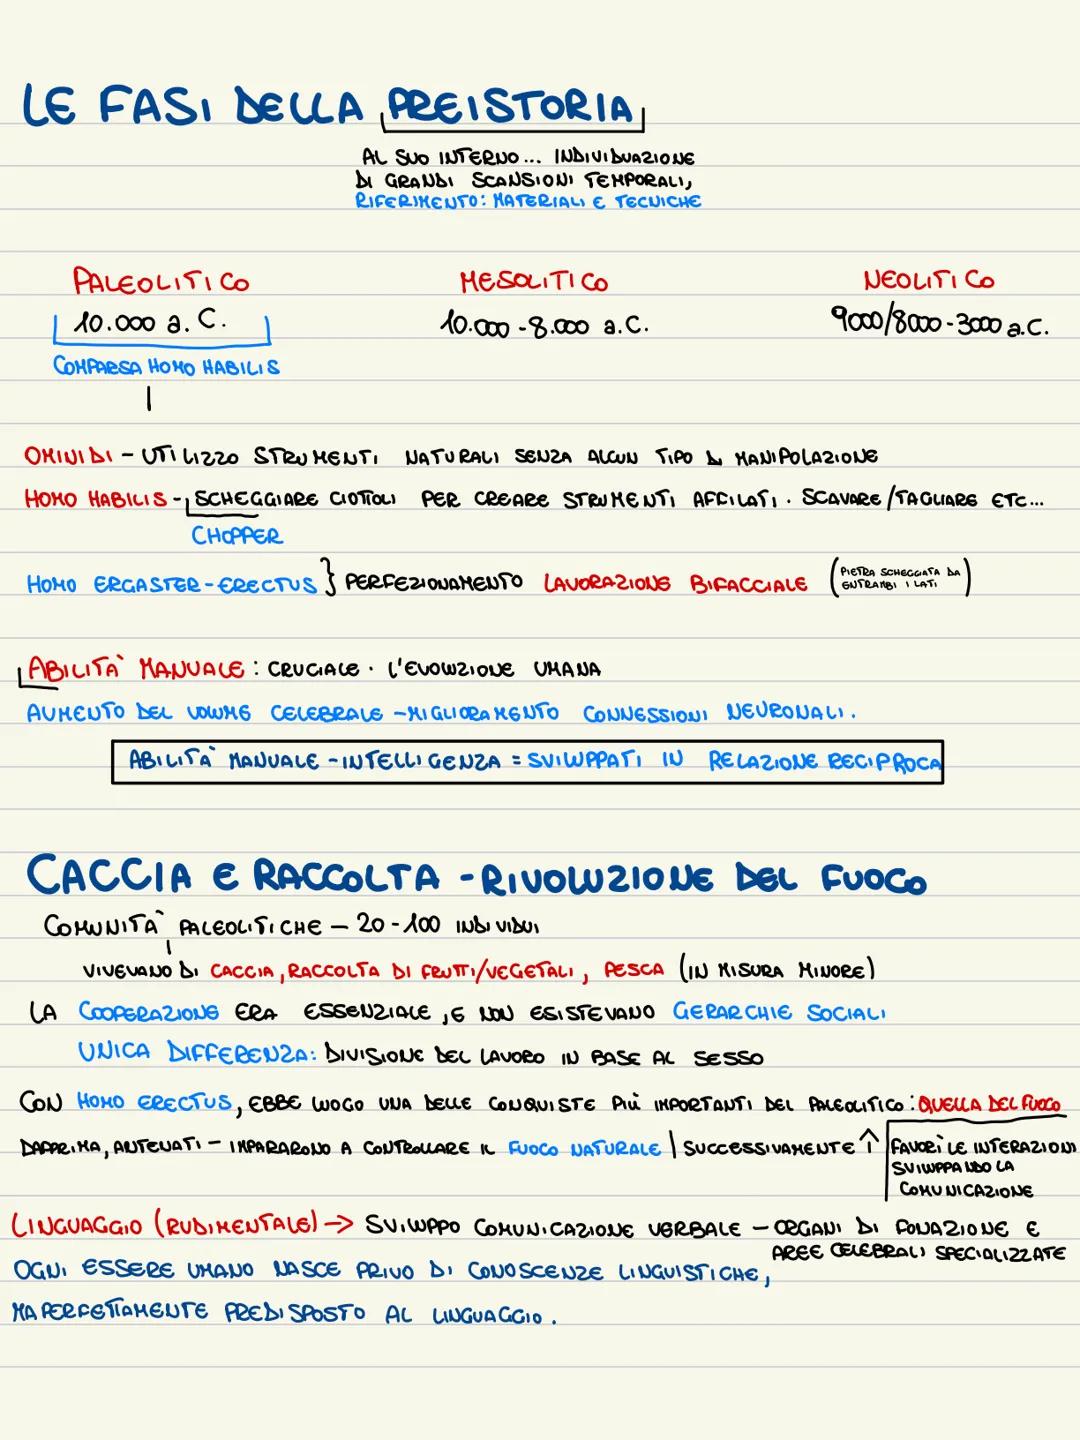 LE FASI DELLA PREISTORIA
AL SUO INTERNO... INDIVIDUAZIONE
DI GRANDI SCANSIONI TEMPORALI,
RIFERIMENTO: MATERIALI E TECNICHE
PALEOLITICO MESOLITICO NEOLITICO
10.000 a.C. 10.000-8.000 a.C. 9000/8000-3000 a.C.
COMPARSA HOMO HABILIS
OMINIDI - UTILIZZO STRUMENTI NATURALI SENZA ALCUN TIPO DI MANIPOLAZIONE
HOMO HABILIS - SCHEGGIARE CIOTTOLI PER CREARE STRUMENTI AFFILATI. SCAVARE/TAGLIARE ETC...
CHOPPER
HOMO ERGASTER-ERECTUS } PERFEZIONAMENTO LAVORAZIONE BIFACCIALE (PIETRA SCHEGGIATA DA
ENTRAMBI I LATI)
ABILITÀ MANUALE: CRUCIALE. L'EVOLUZIONE UMANA
AUMENTO DEL VOLUME CELEBRALE - MIGLIORAMENTO CONNESSIONI NEURONALI.
ABILITÀ MANUALE - INTELLIGENZA = SVILUPPATI IN RELAZIONE RECIPROCA
CACCIA E RACCOLTA - RIVOLUZIONE DEL FUOCO
COMUNITÀ PALEOLITICHE - 20-100 INDIVIDUI
VIVEVANO DI CACCIA, RACCOLTA DI FRUTTI/VEGETALI, PESCA (IN MISURA MINORE)
LA COOPERAZIONE ERA ESSENZIALE, E NON ESISTEVANO GERARCHIE SOCIALI
UNICA DIFFERENZA: DIVISIONE DEL LAVORO IN BASE AL SESSO
CON HOMO ERECTUS, EBBE LUOGO UNA DELLE CONQUISTE PIÙ IMPORTANTI DEL PALEOLITICO: QUELLA DEL FUOCO
DAPPRIMA, ANTENATI - IMPARARONO A CONTROLLARE IL FUOCO NATURALE | SUCCESSIVAMENTE ↑ FAVORÌ LE INTERAZIONI
SVILUPPANDO LA
COMUNICAZIONE
LINGUAGGIO (RUDIMENTALE) → SVILUPPO COMUNICAZIONE VERBALE - ORGANI DI FONAZIONE E
AREE CELEBRALI SPECIALIZZATE
OGNI ESSERE UMANO NASCE PRIVO DI CONOSCENZE LINGUISTICHE,
MA PERFETTAMENTE PREDISPOSTO AL LINGUAGGIO.